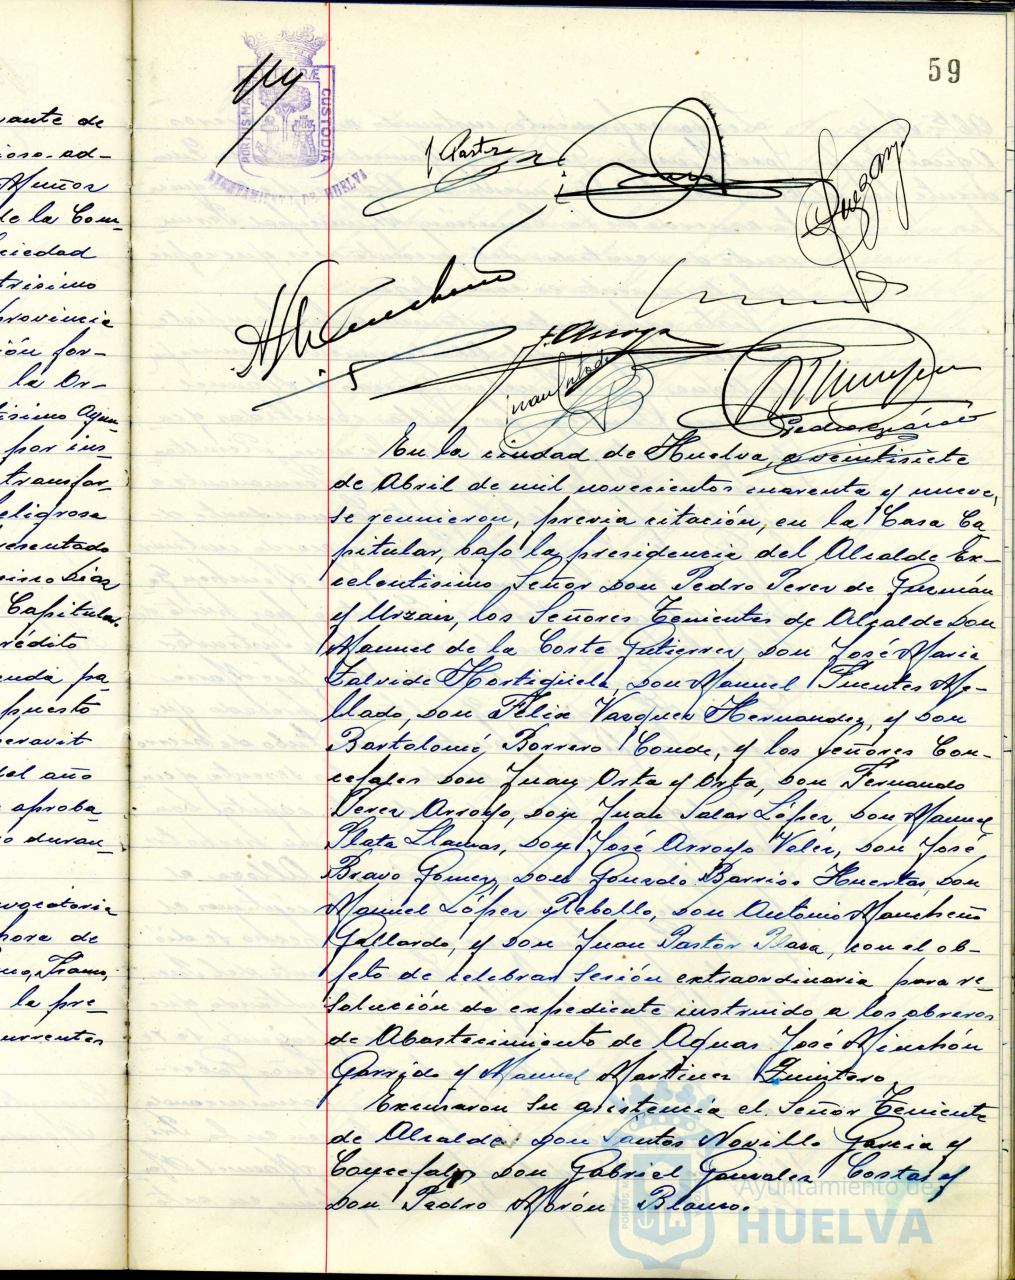 uante de
ioso. ad-
Muñoz
de la Com-
ciedad
trisimo
provincia
ión for-
la Or-
tisimo Ayun-
por ins-
transfor-
eligrosa
resentado
Diaz
Capitular.
rédito
enda pa-
puesto
eravit
del año
aproba-
o duran-
vocatoria
hora de
la pre-
urrentes
59
PORTUS MARIS
CUSTODIA
AYUNTAMIENTO DE HUELVA
J. Pastor
J. Arroyo
En la ciudad de Huelva, a veintisiete
de Abril de mil novecientos cuarenta y nueve,
se reunieron, previa citación, en la Casa Ca
pitular, bajo la presidencia del Alcalde Ex-
celentisimo Señor Don Pedro Perez de Guzmán
y Urzaiz, los Señores Tenientes de Alcalde Don
Manuel de la Corte Gutierrez, Don José Maria
Zalvide Hortigüela, Don Manuel Fuentes Me-
llado, Don Félix Vazquez Hernandez, y Don
Bartolomé Borrero Conde, y los señores Con-
cejales Don Juan Orta y Orta, Don Fernando
Perez Arroyo, Don Juan Salas López, Don Manuel
Plata Llamas, Don José Arroyo Valés, Don José
Bravo Gomez, Don Gonzalo Barrios Huertas, Don
Manuel López Rebollo, Don Antonio Mancheño
Gallardo, y Don Juan Pastor Plaza, con el ob-
jeto de celebrar sesión extraordinaria para re-
solución de expediente instruido a los obreros
de Abastecimiento de Aguas José Minchón
Garrido y Manuel Martinez Quintero
Excusaron su asistencia el Señor Teniente
de Alcalde Don Santos Novillo Garcia y
Concejales Don Gabriel Gonzalez Costa y
Don Pedro Morón Blanco.
Ayuntamiento de
HUELVA